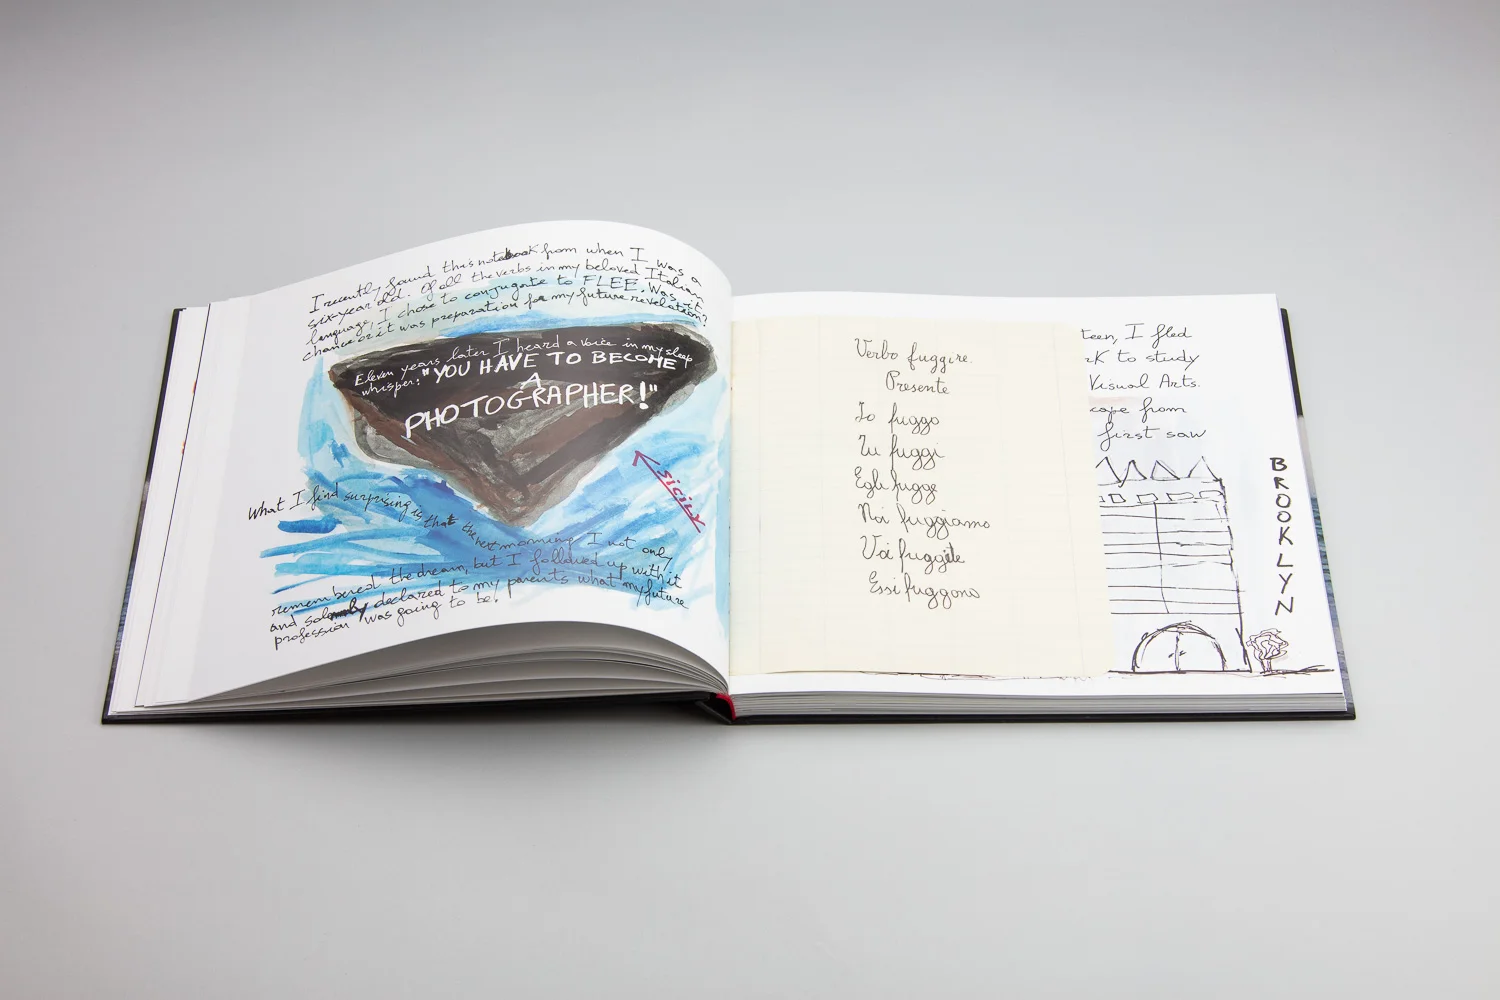 I recently found this notebook from when I was a
six year old. Of all the verbs in my beloved Italian
language, I chose to conjugate to FLEE. Was it
chance or it was preparation for my future revelation?
Eleven years later I heard a voice in my sleep
whisper: "YOU HAVE TO BECOME
A
PHOTOGRAPHER!"
SICILY
What I find surprising is that the next morning I not only
remembered the dream, but I followed up with it
and declared to my parents what my future
profession was going to be.
Verbo fuggire.
Presente
Io fuggo
Tu fuggi
Egli fugge
Noi fuggiamo
Voi fuggite
Essi fuggono
teen, I fled
rk to study
Visual Arts.
cape from
first saw
BROOKLYN